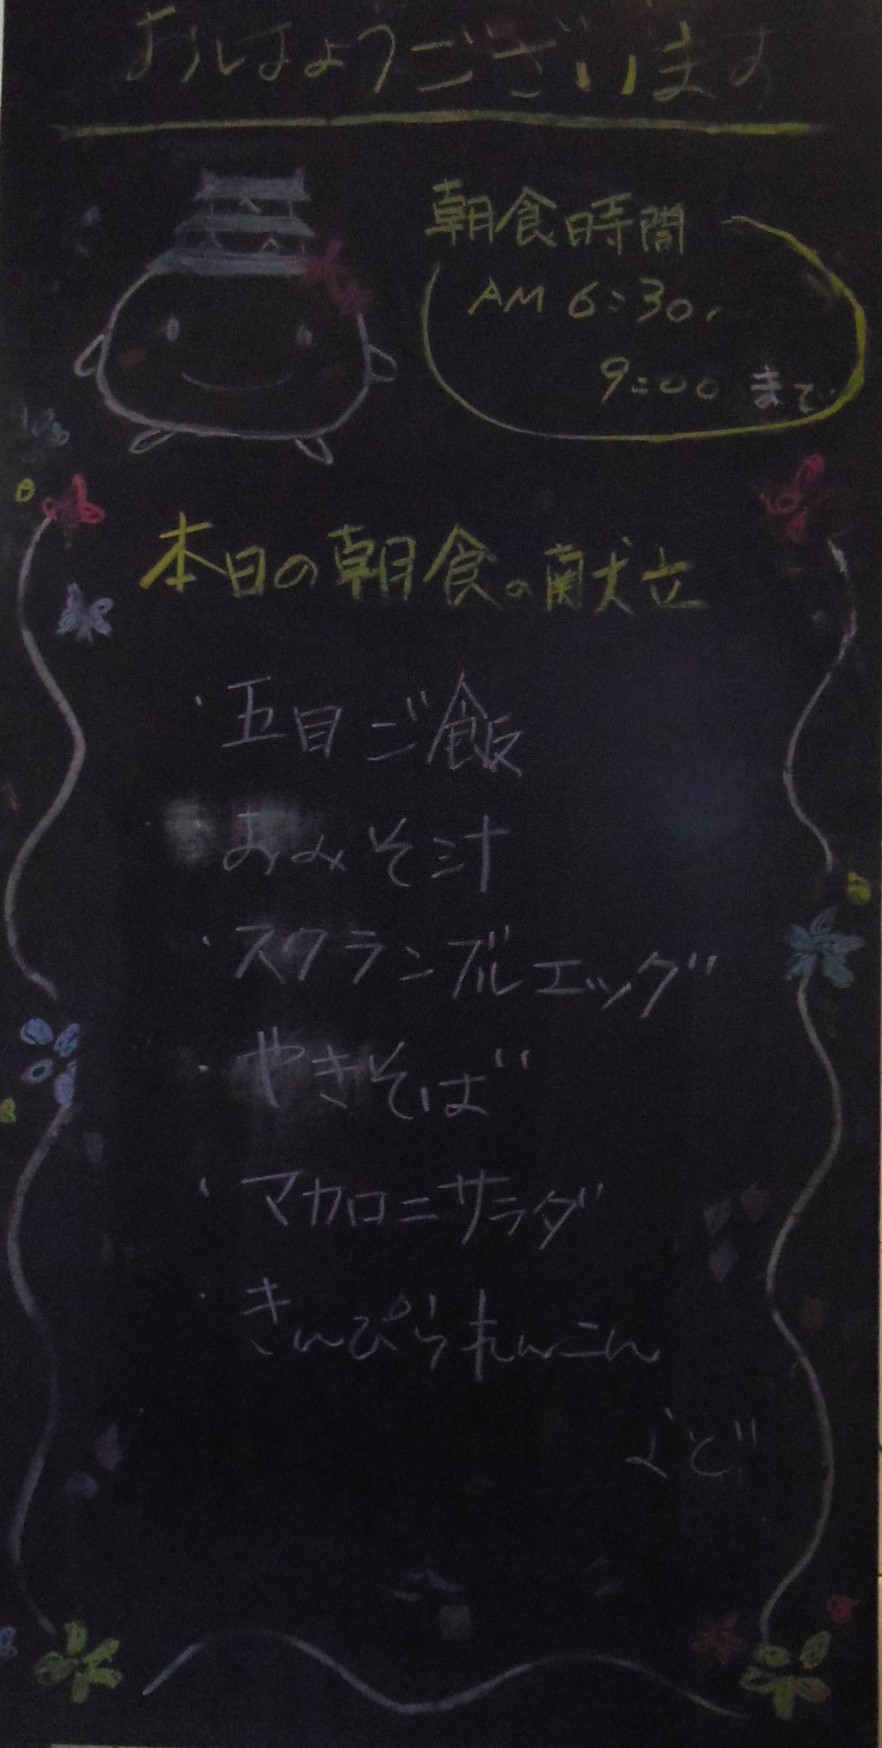 おはようございます
朝食時間
AM 6:30〜
9:00 まで
本日の朝食の献立
・五目ご飯
・おみそ汁
・スクランブルエッグ
・やきそば
・マカロニサラダ
・きんぴられんこん
など